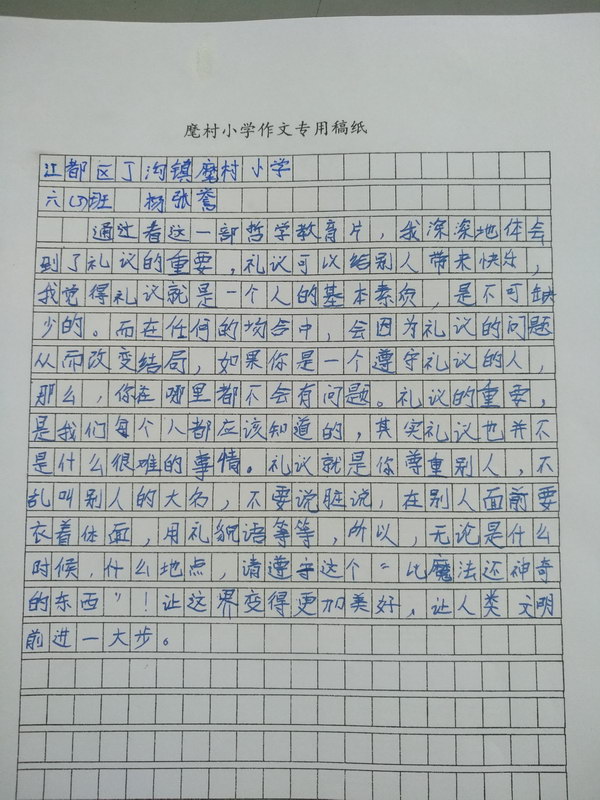 麾村小学作文专用稿纸
江都区丁沟镇麾村小学
六(3)班 杨张誉
通过看这一部哲学教育片，我深深地体会
到了礼议的重要，礼议可以给别人带来快乐，
我觉得礼议就是一个人的基本素质，是不可缺
少的。而在任何的场合中，会因为礼议的问题
从而改变结局，如果你是一个遵守礼议的人，
那么，你在哪里都不会有问题。礼议的重要，
是我们每个人都应该知道的，其实礼议也并不
是什么很难的事情。礼议就是你尊重别人，不
乱叫别人的大名，不要说脏说，在别人面前要
衣着体面，用礼貌语等等，所以，无论是什么
时候，什么地点，请遵守这个“比魔法还神奇
的东西”！让这界变得更加美好，让人类文明
前进一大步。